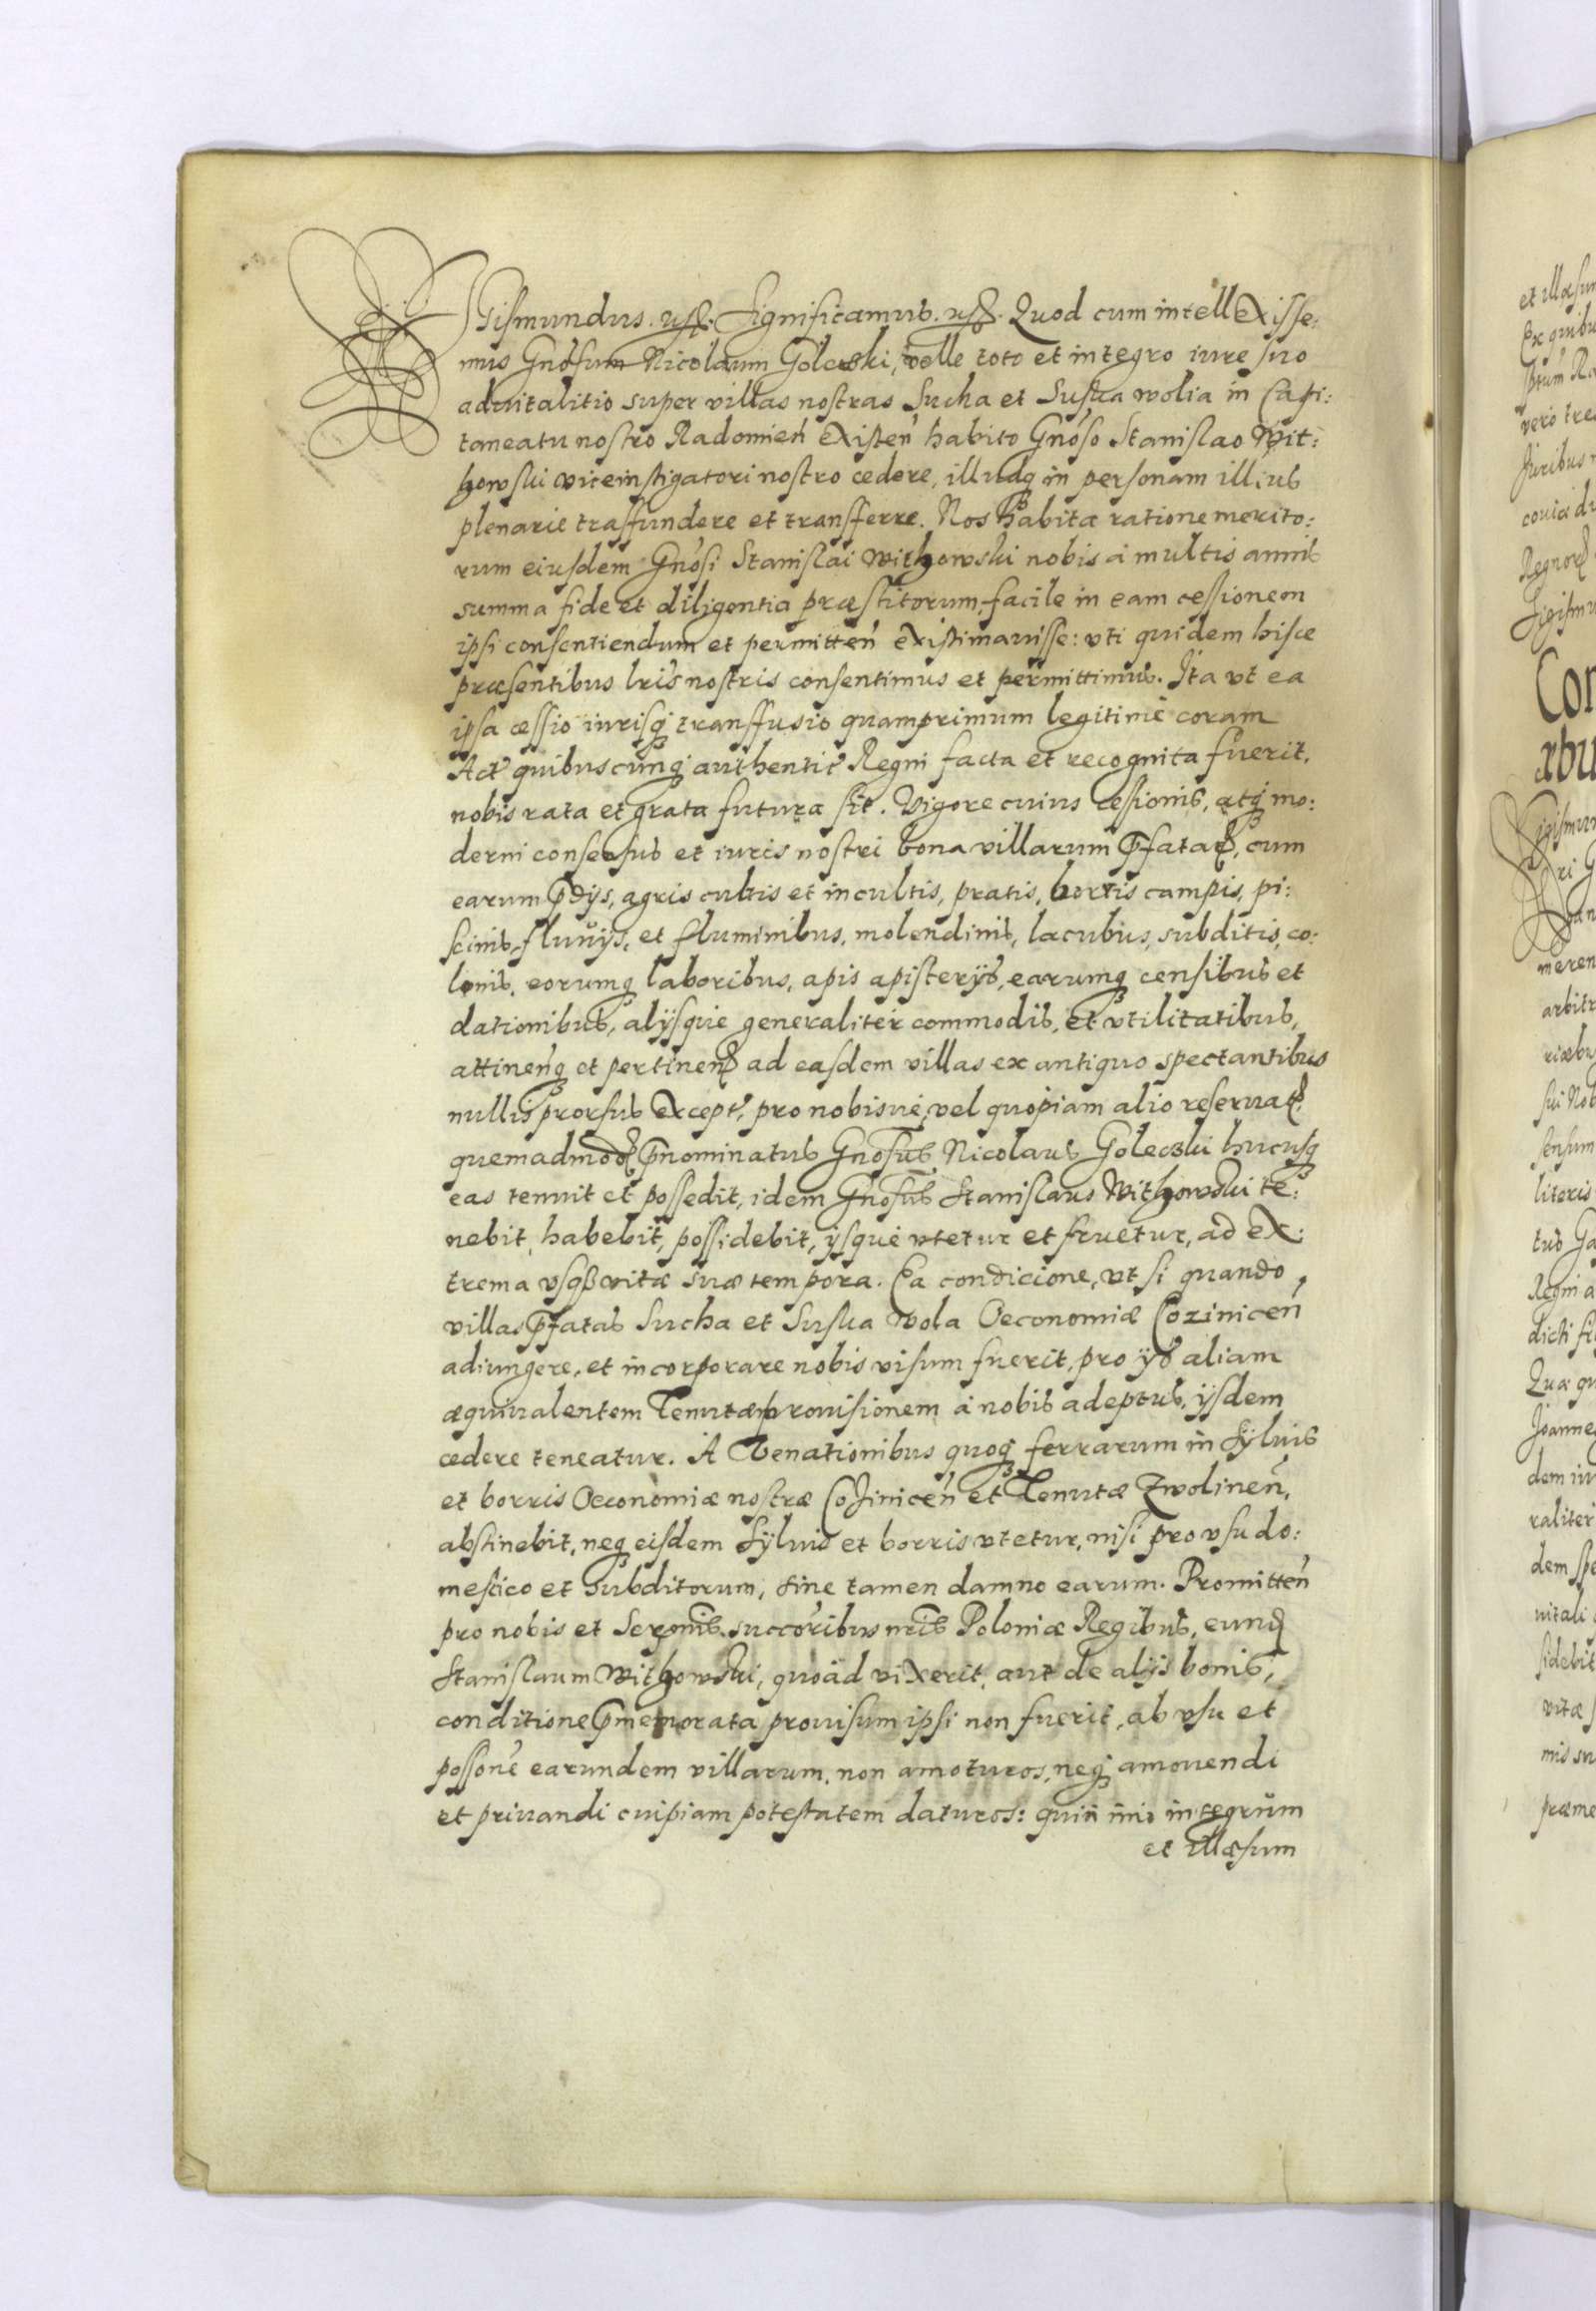 Sigismundus. etc. Significamus. etc. Quod cum intellexisse:
mus Gnosum Nicolaum Golecski, velle toto et integro iure suo
aduitalitio super villas nostras Sucha et Suska wolia in Capi:
taneatu nostro Radomień existeń habito Gnoso Stanislao Wit:
howski viceinstigatori nostro cedere, illudq in personam illius
plenarie trasfundere et transferre. Nos habita ratione merito:
rum eiusdem Gnosi Stanislai Withowski nobis à multis annis
summa fide et diligentia præstitorum, facile in eam cessionem
ipsi consentiendum et permitteń existimauisse: vti quidem hisce
præsentibus lris nostris consentimus et permittimus. Ita vt ea
ipsa cessio iurisq transfusio quamprimum legitimè coram
Act quibuscunq authentic Regni facta et recognita fuerit,
nobis rata et grata futura sit. Vigore cuius cessionis, atq mo:
derni consensus et iuris nostri bona villarum pfatar, cum
earum pdijs, agris cultis et incultis, pratis, hortis campis, pi:
scinis, fluuijs, et fluminibus, molendinis, lacubus, subditis, co:
lonis, eorumq laboribus, apis apisterijs, earumq censibus et
dationibus, alijsque generaliter commodis, et vtilitatibus,
attineńq et pertineń ad easdem villas ex antiquo spectantibus
nullis prorsus except, pro nobisue, vel quopiam alio reseruat,
quemadmod pnominatus Gnosus Nicolaus Golecski hucusq
eas tenuit et possedit, idem Gnosus Stanislaus Withowski te:
nebit, habebit, possidebit, ijsque vtetur et fruetur, ad ex:
trema vsq vitæ suæ tempora. Ea condicione, vt si quando
villas pfatas Sucha et Suska Wola Oeconomiæ Coziniceń
adiungere, et incorporare nobis visum fuerit, pro ijs aliam
æquiualentem Tenutæ prouisionem à nobis adeptus, ijsdem
cedere teneatur. A Venationibus quoq ferrarum in Syluis
et borris Oeconomiæ nostræ Coziniceń et Tenutæ Zwolineń,
abstinebit, neq eisdem Syluis et borris vtetur, nisi pro vsu do:
mestico et subditorum, sine tamen damno earum. Promitteń
pro nobis et Serenmis. succoribus nris Poloniæ Regibus, eund
Stanislaum Withowski, quoad vixerit, aut de alijs bonis,
conditione pmemorata prouisum ipsi non fuerit, ab vsu et
possone earundem villarum, non amoturos, neq amouendi
et priuandi cuipiam potestatem daturos: quin imo integrum
et illæsum